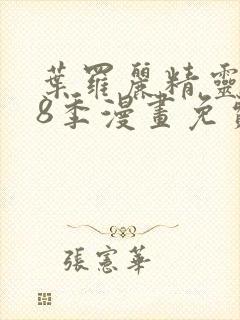 葉羅麗精靈
8季漫畫免
張憲華